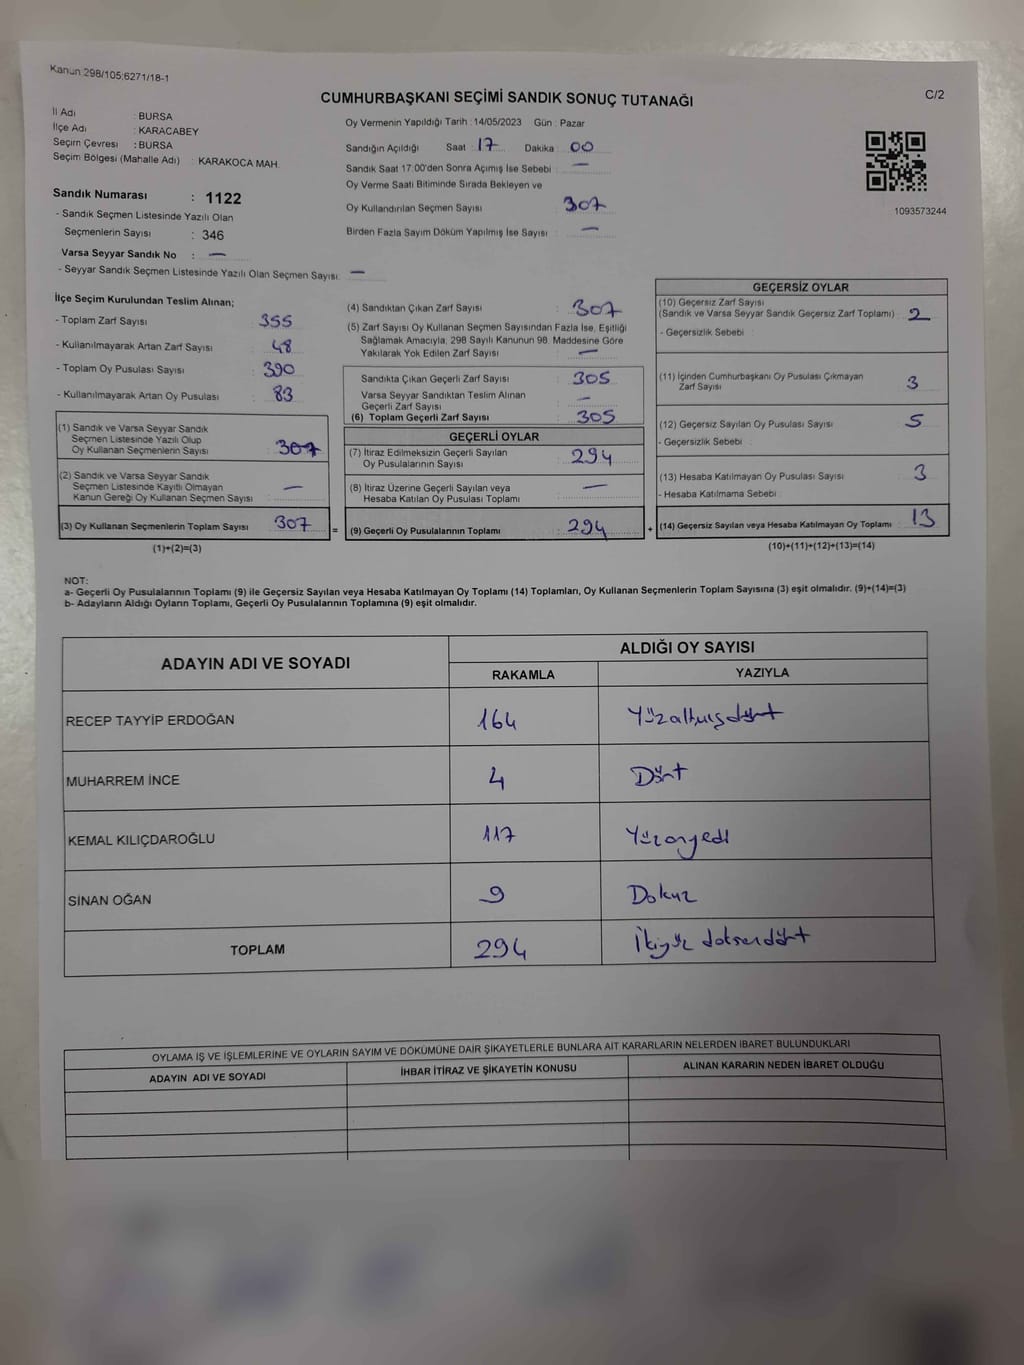 Kanun 298/105;6271/18-1
CUMHURBAŞKANI SEÇİMİ SANDIK SONUÇ TUTANAĞI
C/2
İl Adı : BURSA
İlçe Adı : KARACABEY
Seçim Çevresi : BURSA
Seçim Bölgesi (Mahalle Adı) : KARAKOCA MAH.
Sandık Numarası : 1122
- Sandık Seçmen Listesinde Yazılı Olan
Seçmenlerin Sayısı : 346
Varsa Seyyar Sandık No : —
- Seyyar Sandık Seçmen Listesinde Yazılı Olan Seçmen Sayısı: —
Oy Vermenin Yapıldığı Tarih : 14/05/2023 Gün : Pazar
Sandığın Açıldığı Saat : 17 Dakika : 00
Sandık Saat 17:00'den Sonra Açımış İse Sebebi : —
Oy Verme Saati Bitiminde Sırada Bekleyen ve
Oy Kullandırılan Seçmen Sayısı : 307
Birden Fazla Sayım Döküm Yapılmış İse Sayısı : —
1093573244
İlçe Seçim Kurulundan Teslim Alınan;
- Toplam Zarf Sayısı : 355
- Kullanılmayarak Artan Zarf Sayısı : 48
- Toplam Oy Pusulası Sayısı : 390
- Kullanılmayarak Artan Oy Pusulası : 83
(1) Sandık ve Varsa Seyyar Sandık
Seçmen Listesinde Yazılı Olup
Oy Kullanan Seçmenlerin Sayısı : 307
(2) Sandık ve Varsa Seyyar Sandık
Seçmen Listesinde Kayıtlı Olmayan
Kanun Gereği Oy Kullanan Seçmen Sayısı : —
(3) Oy Kullanan Seçmenlerin Toplam Sayısı : 307 =
(1)+(2)=(3)
(4) Sandıktan Çıkan Zarf Sayısı : 307
(5) Zarf Sayısı Oy Kullanan Seçmen Sayısından Fazla İse, Eşitliği
Sağlamak Amacıyla, 298 Sayılı Kanunun 98. Maddesine Göre
Yakılarak Yok Edilen Zarf Sayısı : —
Sandıkta Çıkan Geçerli Zarf Sayısı : 305
Varsa Seyyar Sandıktan Teslim Alınan
Geçerli Zarf Sayısı : —
(6) Toplam Geçerli Zarf Sayısı : 305
GEÇERLİ OYLAR
(7) İtiraz Edilmeksizin Geçerli Sayılan
Oy Pusulalarının Sayısı : 294
(8) İtiraz Üzerine Geçerli Sayılan veya
Hesaba Katılan Oy Pusulası Toplamı : —
(9) Geçerli Oy Pusulalarının Toplamı : 294 +
GEÇERSİZ OYLAR
(10) Geçersiz Zarf Sayısı
(Sandık ve Varsa Seyyar Sandık Geçersiz Zarf Toplamı) : 2
- Geçersizlik Sebebi :
(11) İçinden Cumhurbaşkanı Oy Pusulası Çıkmayan
Zarf Sayısı : 3
(12) Geçersiz Sayılan Oy Pusulası Sayısı : 5
- Geçersizlik Sebebi :
(13) Hesaba Katılmayan Oy Pusulası Sayısı : 3
- Hesaba Katılmama Sebebi :
(14) Geçersiz Sayılan veya Hesaba Katılmayan Oy Toplamı : 13
(10)+(11)+(12)+(13)=(14)
NOT:
a- Geçerli Oy Pusulalarının Toplamı (9) ile Geçersiz Sayılan veya Hesaba Katılmayan Oy Toplamı (14) Toplamları, Oy Kullanan Seçmenlerin Toplam Sayısına (3) eşit olmalıdır. (9)+(14)=(3)
b- Adayların Aldığı Oyların Toplamı, Geçerli Oy Pusulalarının Toplamına (9) eşit olmalıdır.
ADAYIN ADI VE SOYADI ALDIĞI OY SAYISI
RAKAMLA YAZIYLA
RECEP TAYYİP ERDOĞAN 164 Yüzaltmışdört
MUHARREM İNCE 4 Dört
KEMAL KILIÇDAROĞLU 117 Yüzonyedi
SİNAN OĞAN 9 Dokuz
TOPLAM 294 İkiyüz doksandört
OYLAMA İŞ VE İŞLEMLERİNE VE OYLARIN SAYIM VE DÖKÜMÜNE DAİR ŞİKAYETLERLE BUNLARA AİT KARARLARIN NELERDEN İBARET BULUNDUKLARI
ADAYIN ADI VE SOYADI İHBAR İTİRAZ VE ŞİKAYETİN KONUSU ALINAN KARARIN NEDEN İBARET OLDUĞU